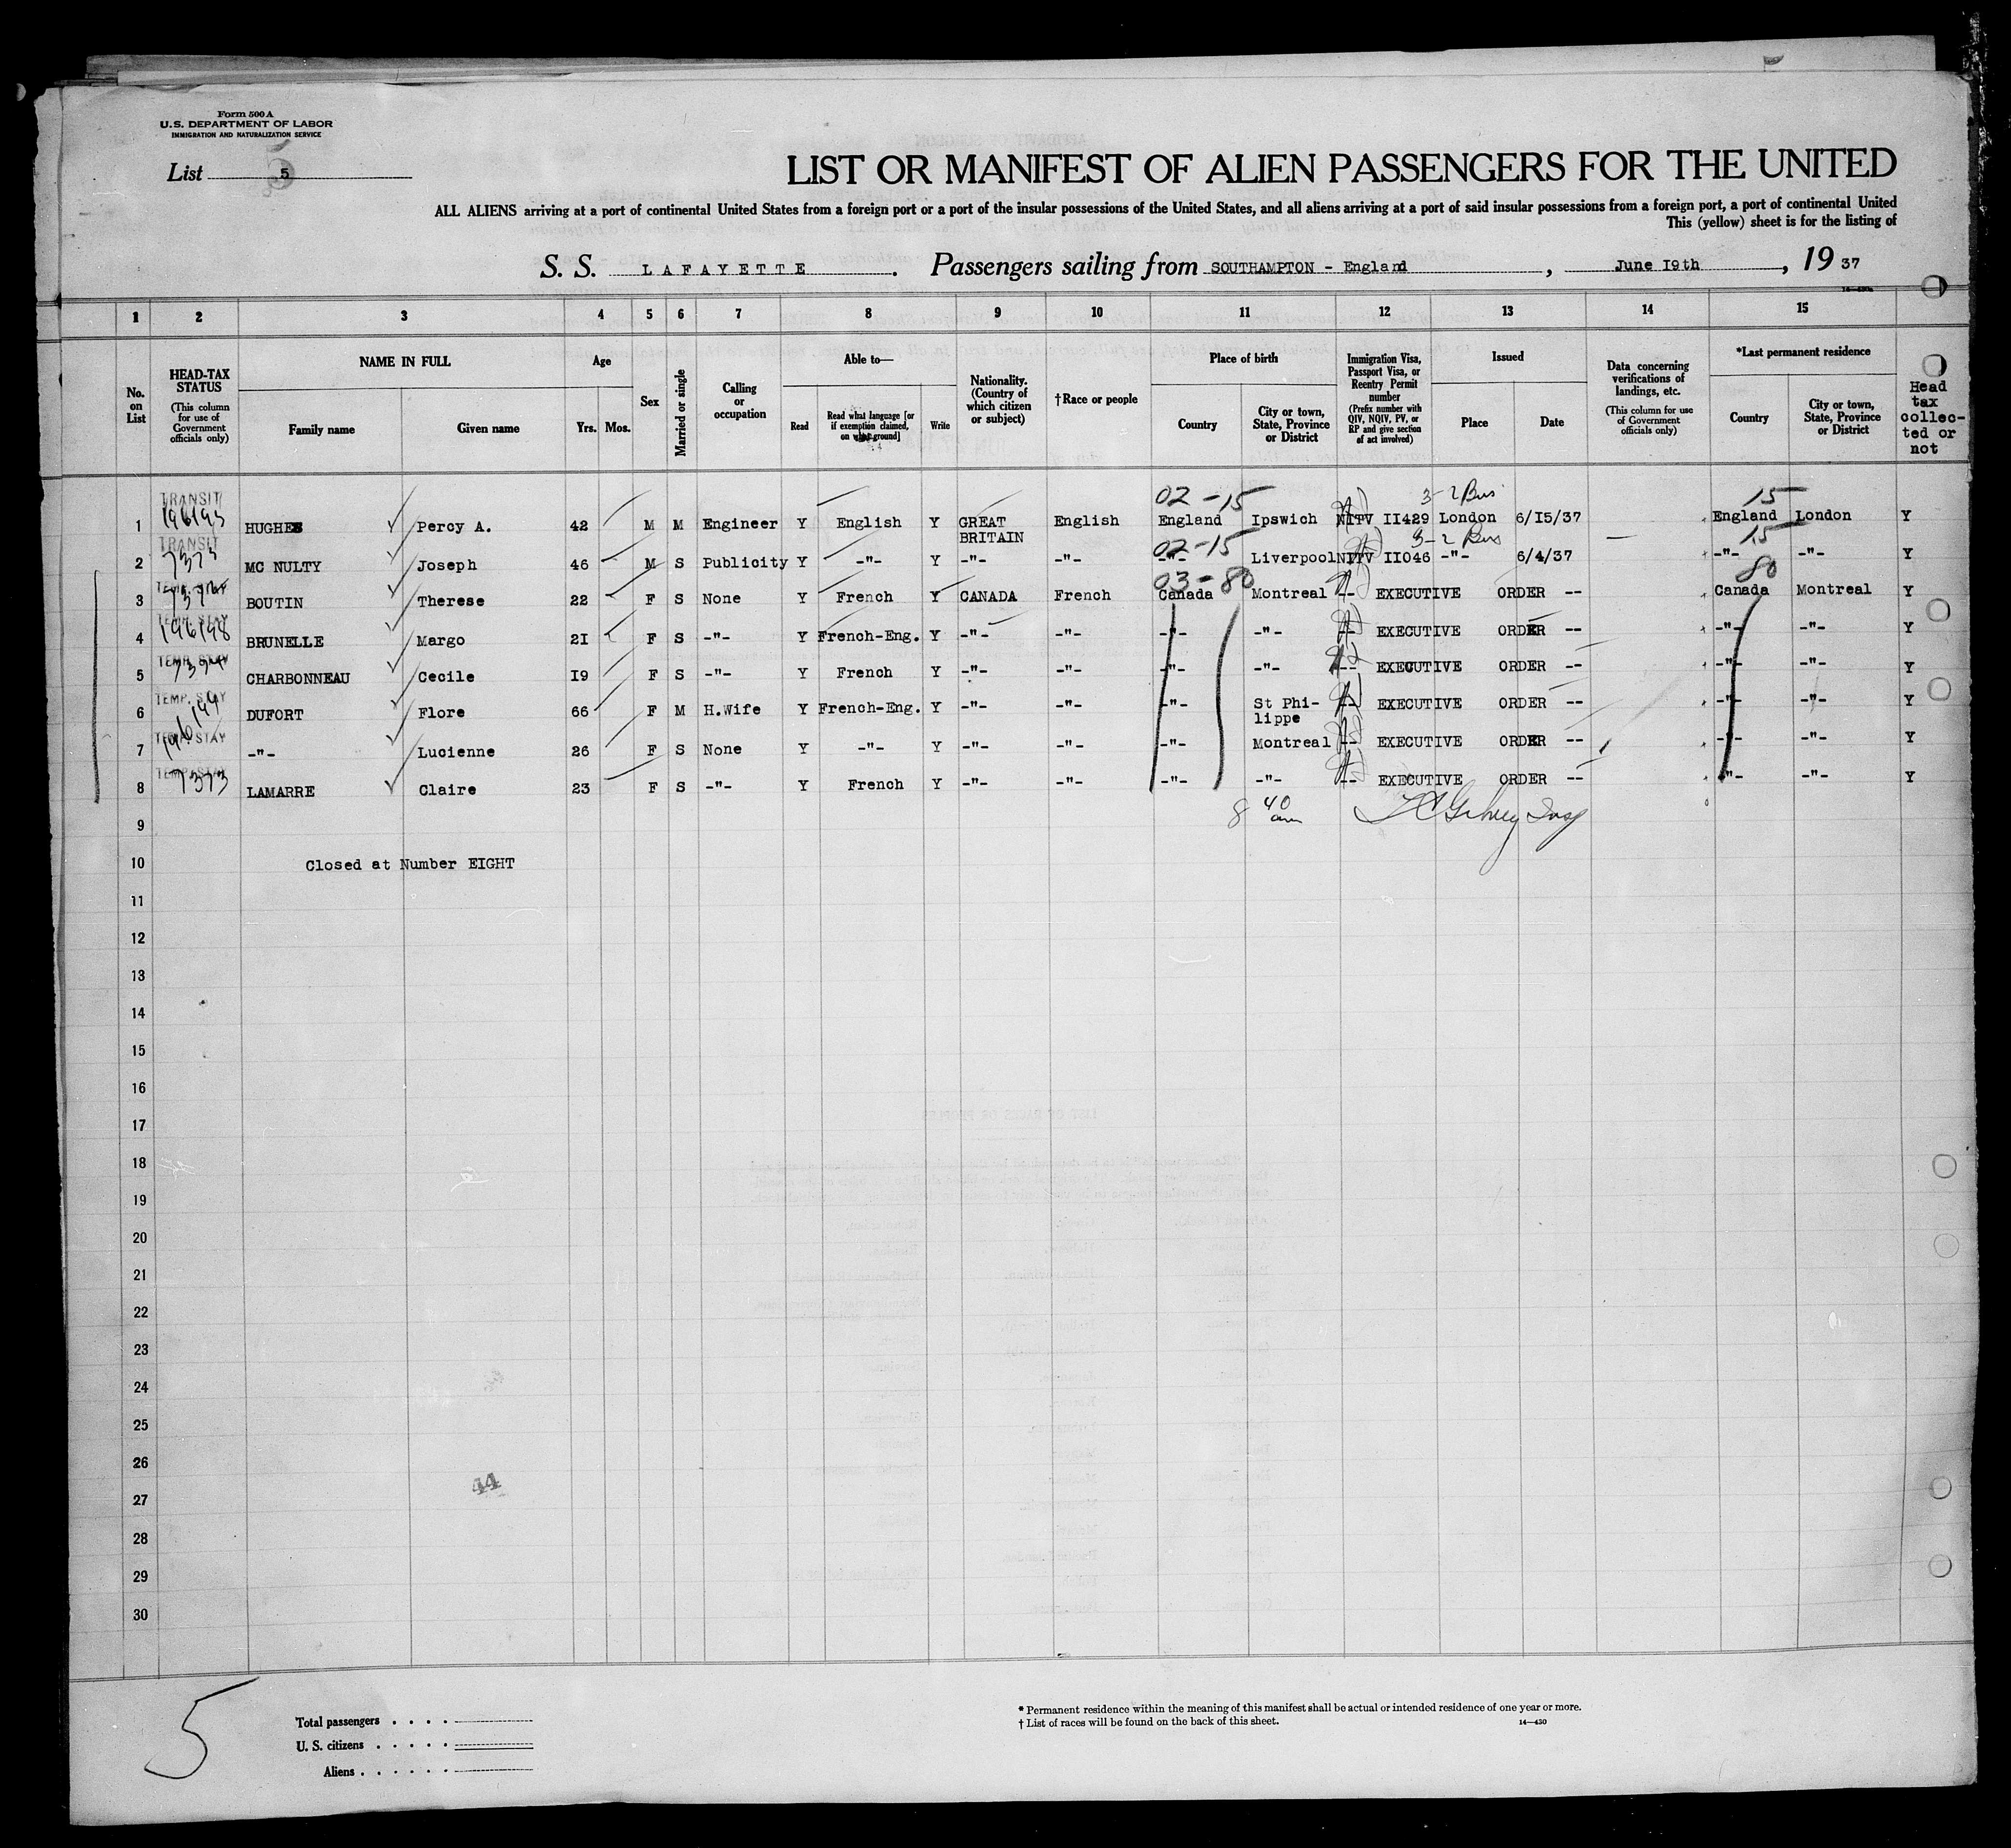 Form 500 A
U.S. DEPARTMENT OF LABOR
IMMIGRATION AND NATURALIZATION SERVICE
List 5
LIST OR MANIFEST OF ALIEN PASSENGERS FOR THE UNITED
ALL ALIENS arriving at a port of continental United States from a foreign port or a port of the insular possessions of the United States, and all aliens arriving at a port of said insular possessions from a foreign port, a port of continental United
This (yellow) sheet is for the listing of
S. S. LAFAYETTE. Passengers sailing from SOUTHAMPTON - England, June I9th, 19 37
1 2 3 4 5 6 7 8 9 10 11 12 13 14 15
No. on List
HEAD-TAX STATUS (This column for use of Government officials only)
NAME IN FULL
Family name Given name
Age
Yrs. Mos.
Sex
Married or single
Calling or occupation
Able to—
Read Read what language [or if exemption claimed, on what ground] Write
Nationality. (Country of which citizen or subject)
†Race or people
Place of birth
Country City or town, State, Province or District
Immigration Visa, Passport Visa, or Reentry Permit number (Prefix number with QIV, NQIV, PV, or RP and give section of act involved)
Issued
Place Date
Data concerning verifications of landings, etc. (This column for use of Government officials only)
*Last permanent residence
Country City or town, State, Province or District
Head tax collec- ted or not
TRANSIT 02-15 3-2 Bus 15
1 HUGHES Percy A. 42 M M Engineer Y English Y GREAT BRITAIN English England Ipswich NITV II429 London 6/I5/37 England London Y
TRANSIT 02-15 3-2 Bus 15
2 7373 MC NULTY Joseph 46 M S Publicity Y -"- Y -"- -"- -"- Liverpool NITV II046 -"- 6/4/37 -"- -"- Y
TEMP. STAY 03-80 80
3 BOUTIN Therese 22 F S None Y French Y CANADA French Canada Montreal -- EXECUTIVE ORDER -- Canada Montreal Y
TEMP. STAY
4 196198 BRUNELLE Margo 2I F S -"- Y French-Eng. Y -"- -"- -"- -"- -- EXECUTIVE ORDER -- -"- -"- Y
TEMP. STAY
5 CHARBONNEAU Cecile I9 F S -"- Y French Y -"- -"- -"- -"- -- EXECUTIVE ORDER -- -"- -"- Y
TEMP. STAY
6 DUFORT Flore 66 F M H.Wife Y French-Eng. Y -"- -"- -"- St Phi- lippe -- EXECUTIVE ORDER -- -"- -"- Y
TEMP. STAY
7 -"- Lucienne 26 F S None Y -"- Y -"- -"- -"- Montreal -- EXECUTIVE ORDER -- -"- -"- Y
TEMP. STAY
8 7373 LAMARRE Claire 23 F S -"- Y French Y -"- -"- -"- -"- -- EXECUTIVE ORDER -- -"- -"- Y
9 8 40 am
10 Closed at Number EIGHT
11
12
13
14
15
16
17
18
19
20
21
22
23
24
25
26
44
27
28
29
30
5
Total passengers
U. S. citizens
Aliens
* Permanent residence within the meaning of this manifest shall be actual or intended residence of one year or more.
† List of races will be found on the back of this sheet.
14—430